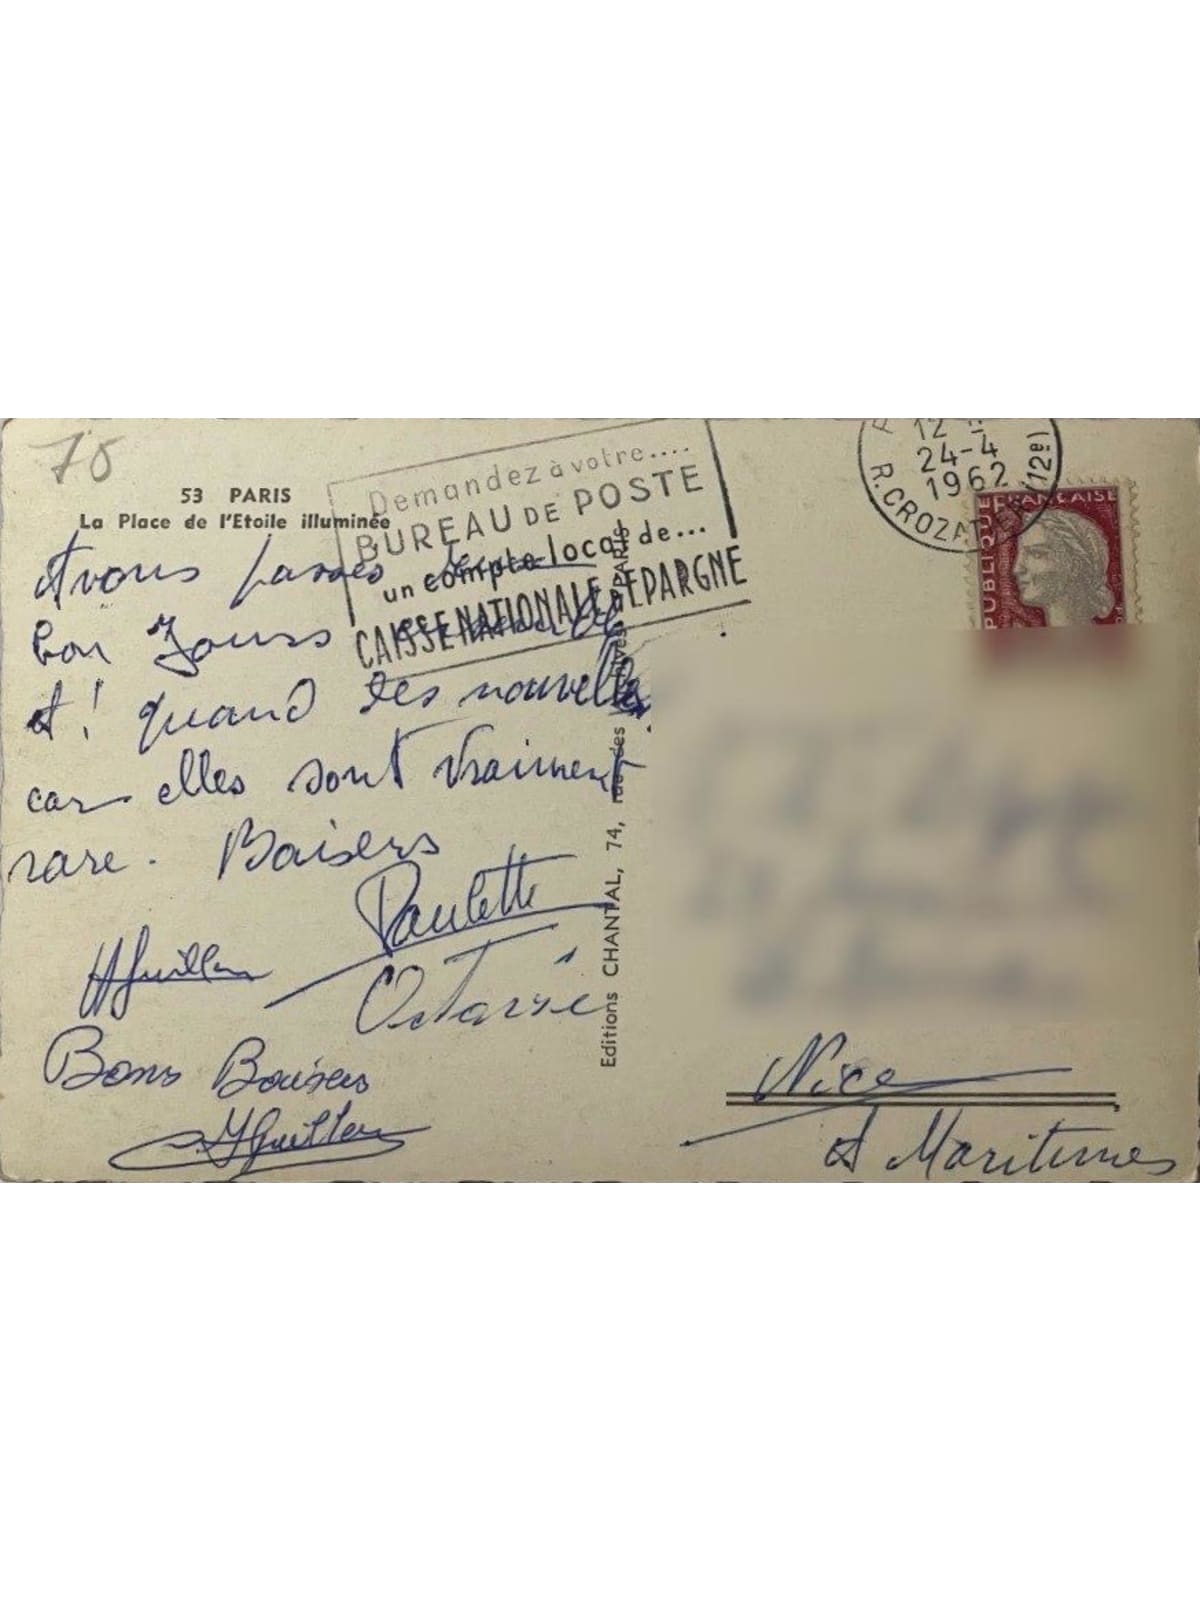 70
53 PARIS
La Place de l'Etoile illuminée
Avons passés
bon Jours
et! quand tes nouvelles
car elles sont vraiment
rare. Baisers
Paulette
HGuillou
Octavie
Bons Baisers
Demandez à votre....
BUREAU DE POSTE
un compte local de...
CAISSE NATIONALE D'EPARGNE
Editions CHANTAL, 74, rue des PARIS
12
24-4
1962
R. CROZATIER (12e)
REPUBLIQUE FRANÇAISE
Nice
A Maritimes